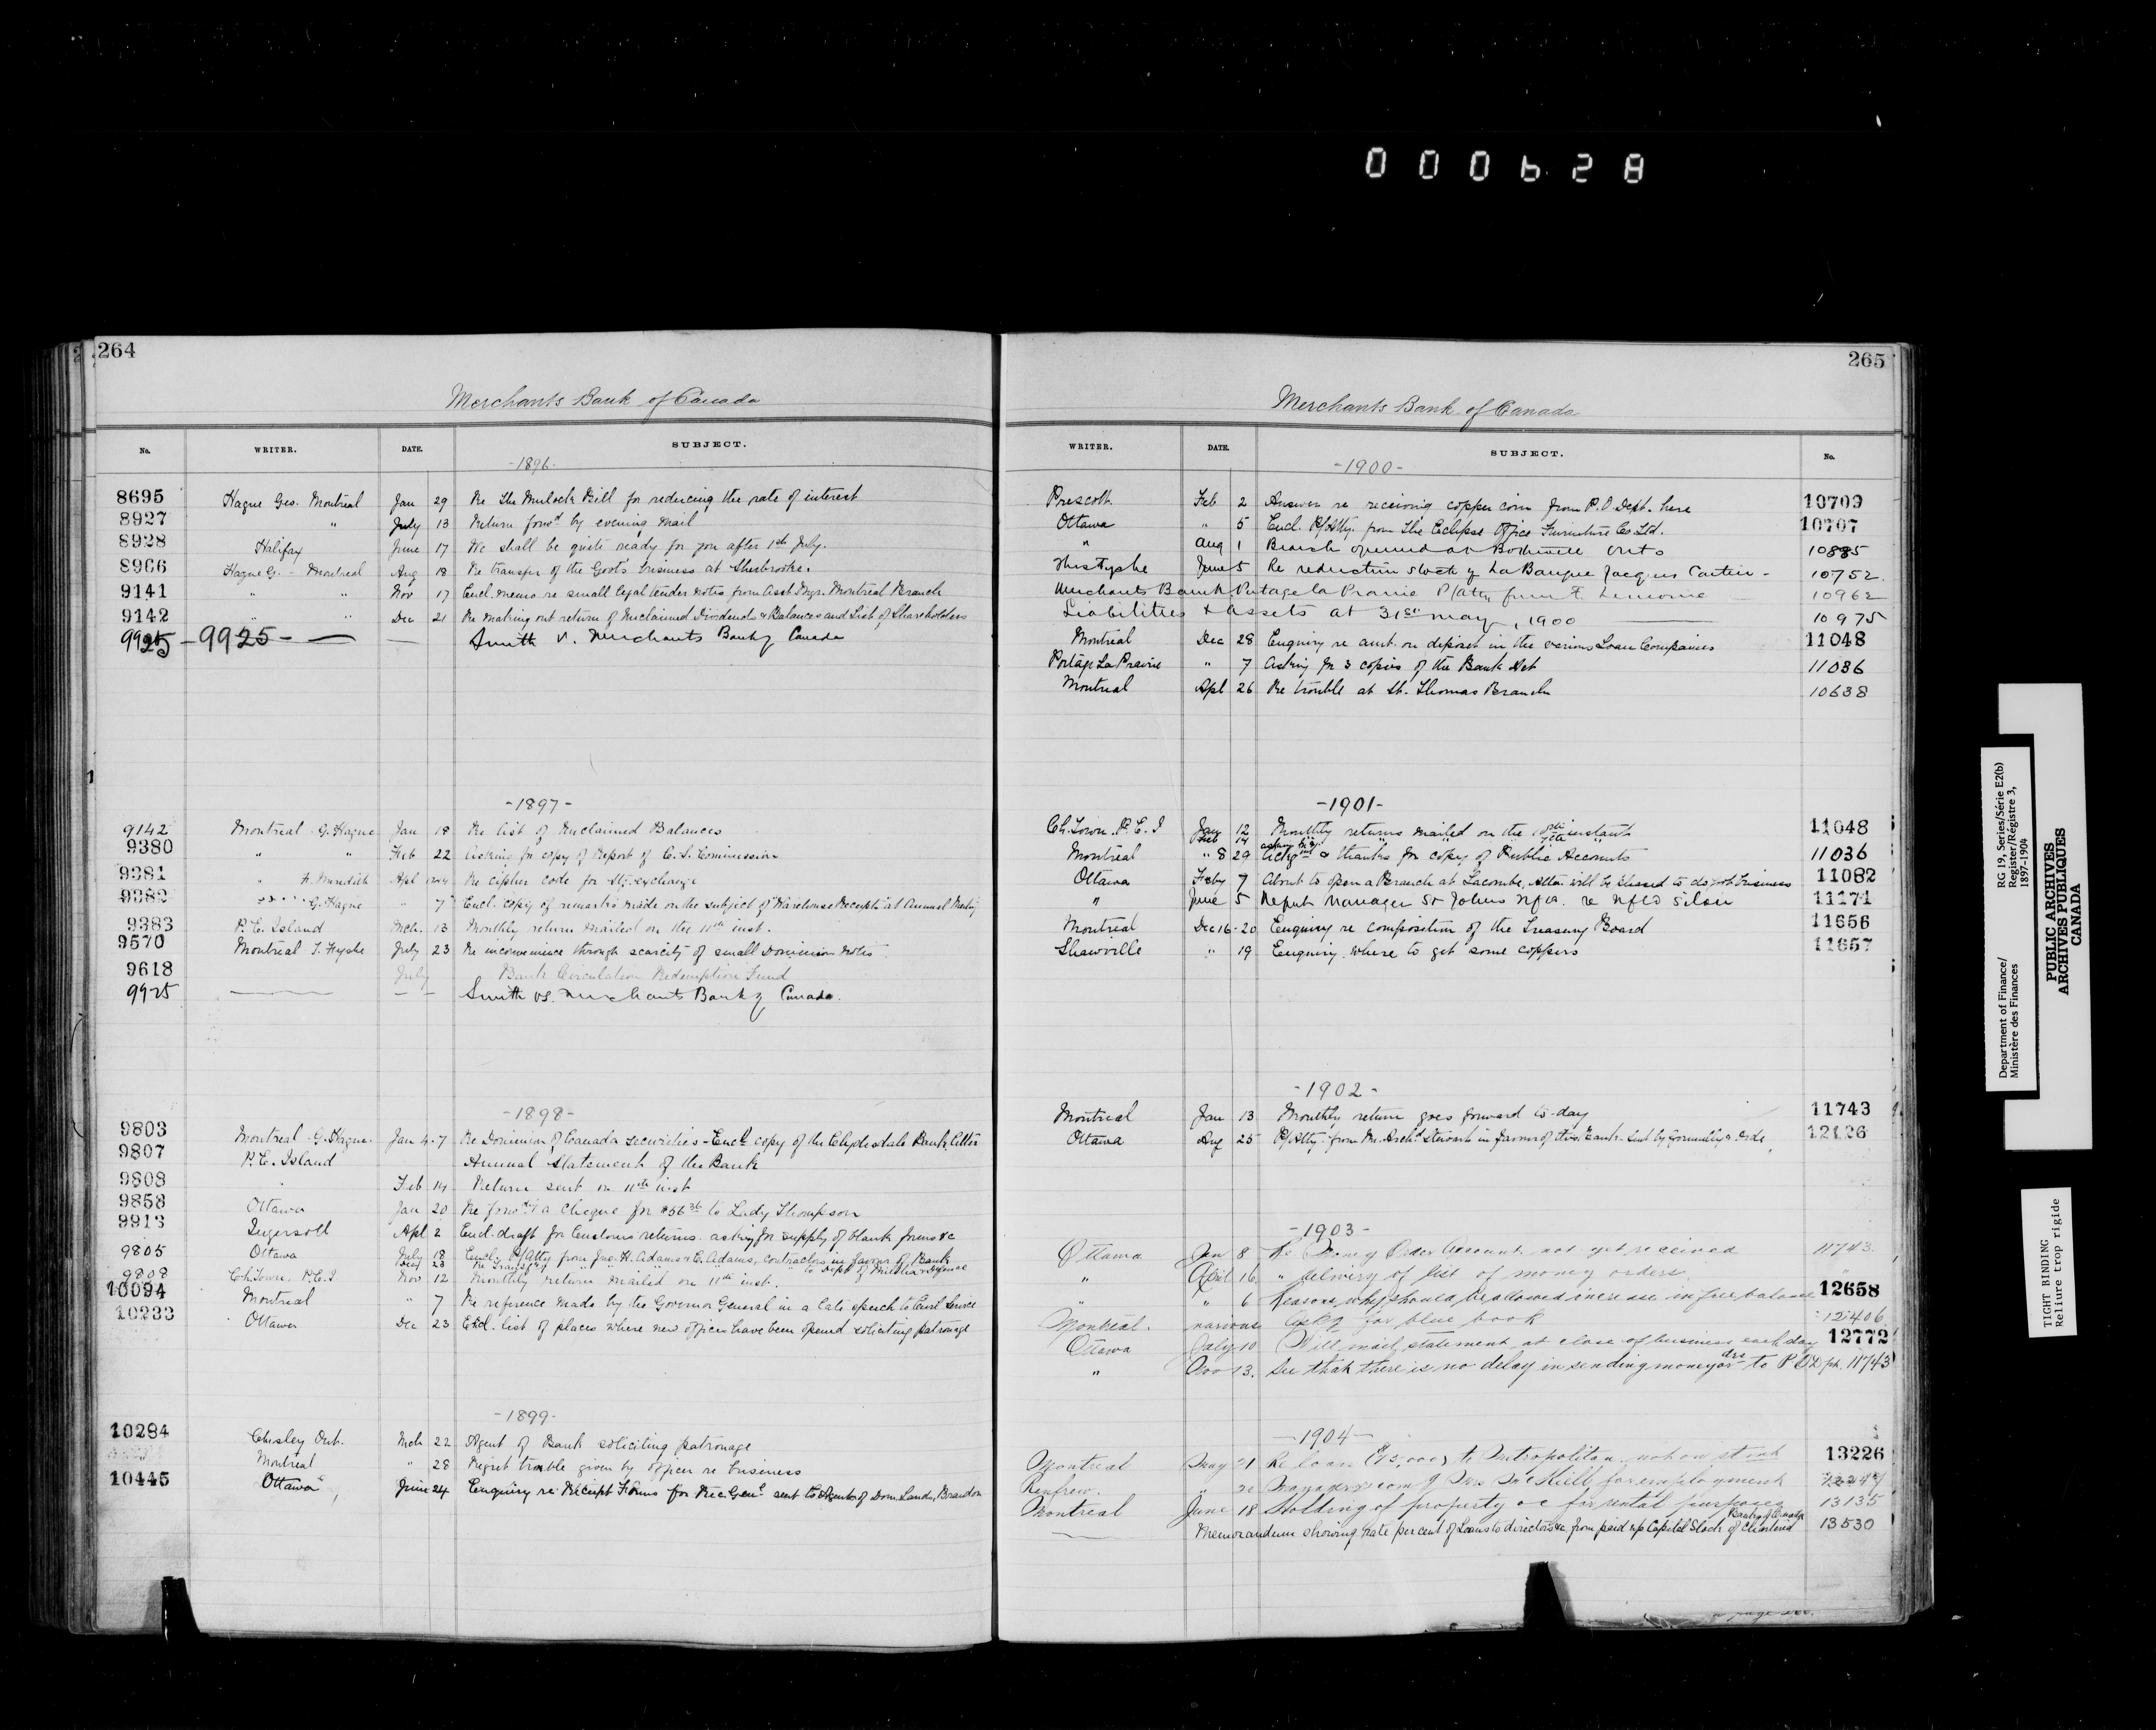 000628
264
Merchants Bank of Canada
No. WRITER. DATE. SUBJECT.
-1896-
8695 Hague Geo. Montreal Jan 29 Re the Mulock Bill for reducing the rate of interest
8927 " July 13 Return forwd by evening mail
8928 Halifax June 17 We shall be quite ready for you after 1st July.
8966 Hague G. - Montreal Aug 18 Re transfer of the Govt's business at Sherbrooke.
9141 " " Nov 17 Encl. memo re small legal tender notes from Asst Mgr. Montreal Branch
9142 " " Dec 21 Re making out return of Unclaimed Dividends & Balances and List of Shareholders
9925 - 9925 - — — Smith v. Merchants Bank of Canada
-1897-
9142 Montreal G. Hague Jan 18 Re list of Unclaimed Balances
9380 " " Feb 22 Asking for copy of Report of C. S. Commission
9381 " Meredith Apl Re cipher code for Stg. exchange
9382 " G. Hague " 7 Encl. copy of remarks made on the subject of "Warehouse Receipts" at Annual Meeting
9383 P. E. Island Mch. 13 Monthly return mailed on the 11th inst.
9570 Montreal T. Fyshe July 23 Re inconvenience through scarcity of small Dominion Notes
9618 July Bank Circulation Redemption Fund
9925 — — — Smith vs. Merchants Bank of Canada.
-1898-
9803 Montreal G. Hague. Jan 4-7 Re Dominion of Canada Securities - Encl. copy of the Clydesdale Bank letter
9807 P. E. Island Annual Statement of the Bank
9808 Feb 14 Return sent on 11th inst
9858 Ottawa Jan 20 Re a cheque for to Lady Thompson
9913 Ingersoll Apl 2 Encl. draft for Customs returns. asking for supply of blank forms &c
9805 Ottawa July 18 Encl. P/Atty from Jno. H. Adams & E. Adams, contractors in favour of Bank
Dec 23 Re to Dept of Militia & Defense
9808 Ch.Town. P.E.I. Nov 12 Monthly return mailed on 11th inst.
10094 Montreal " 7 Re reference made by the Governor General in a late speech to Civil Service
10233 Ottawa Dec 23 Encl. list of places where new offices have been opened soliciting patronage
-1899-
10284 Chesley Ont. Mch 22 Agent of Bank soliciting patronage
Montreal " 28 Regret trouble given by officer re business
10445 Ottawa June 24 Enquiry re Receipt Forms for Rec. Genl. sent to Agents of Dom. Lands, Brandon
265
Merchants Bank of Canada
WRITER. DATE. SUBJECT. No.
-1900-
Prescott Feb 2 Answer re receiving copper coin from P.O. Dept. here 10709
Ottawa " 5 Encl. P/Atty. from The Eclipse Office Furniture Co Ltd. 10707
" Aug 1 Branch opened at Bothwell Onto 10885
Thos Fyshe June 5 Re reduction stock of La Banque Jacques Cartier - 10752
Merchants Bank, Portage la Prairie P/Atty from 10962
Liabilities & Assets at 31st May, 1900 10975
Montreal Dec 28 Enquiry re amt. on deposit in the various Loan Companies 11048
Portage La Prairie " 7 Asking for 3 copies of the Bank Act 11036
Montreal Apl 26 Re trouble at St. Thomas Branch 10638
-1901-
Ch.Town. P.E.I Jan 12 Monthly returns mailed on the instant 11048
Feb 14
Montreal " 8 29 asking for & thanks for copy of Public Accounts 11036
Ottawa Feby 7 About to open a Branch at Lacombe, Alta. will be pleased to do govt business 11082
" June 5 Deput Manager St Johns Nfld. re Nfld silver 11171
Montreal Dec 16-20 Enquiry re composition of the Treasury Board 11656
Shawville " 19 Enquiry where to get some coppers 11657
-1902-
Montreal Jan 13 Monthly return goes forward to-day 11743
Ottawa Aug 25 P/Atty. from Mr. Archd Stewart in favour of this Bank. 12126
-1903-
Ottawa Jan 8 Re Money Order Account not yet received 11743
" April 16 " delivery of list of money orders
" " 6 Reasons why should be allowed increase in free balance 12658
Montreal. various Ack'g for blue book 12406
Ottawa July 10 Will mail statement at close of business each day 12772
" Nov 13. See that there is no delay in sending money ors to P.O.D. 11743
-1904-
Montreal May 21 Re loan to Metropolitan 13226
Renfrew. for employment
Montreal June 18 Holding of property &c for rental purposes 13135
Memorandum showing rate percent of Loans to directors &c. from paid up Capital Stock of Chartered Banks of Canada 13530
Department of Finance/
Ministère des Finances
RG 19, Series/Série E2(b)
Register/Régistre 3,
1897-1904
PUBLIC ARCHIVES
ARCHIVES PUBLIQUES
CANADA
TIGHT BINDING
Reliure trop rigide